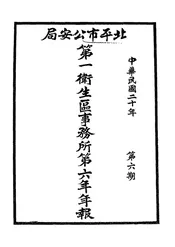 北平市公安局
第一衛生區事務所第六年年報
中華民國二十年
第六期